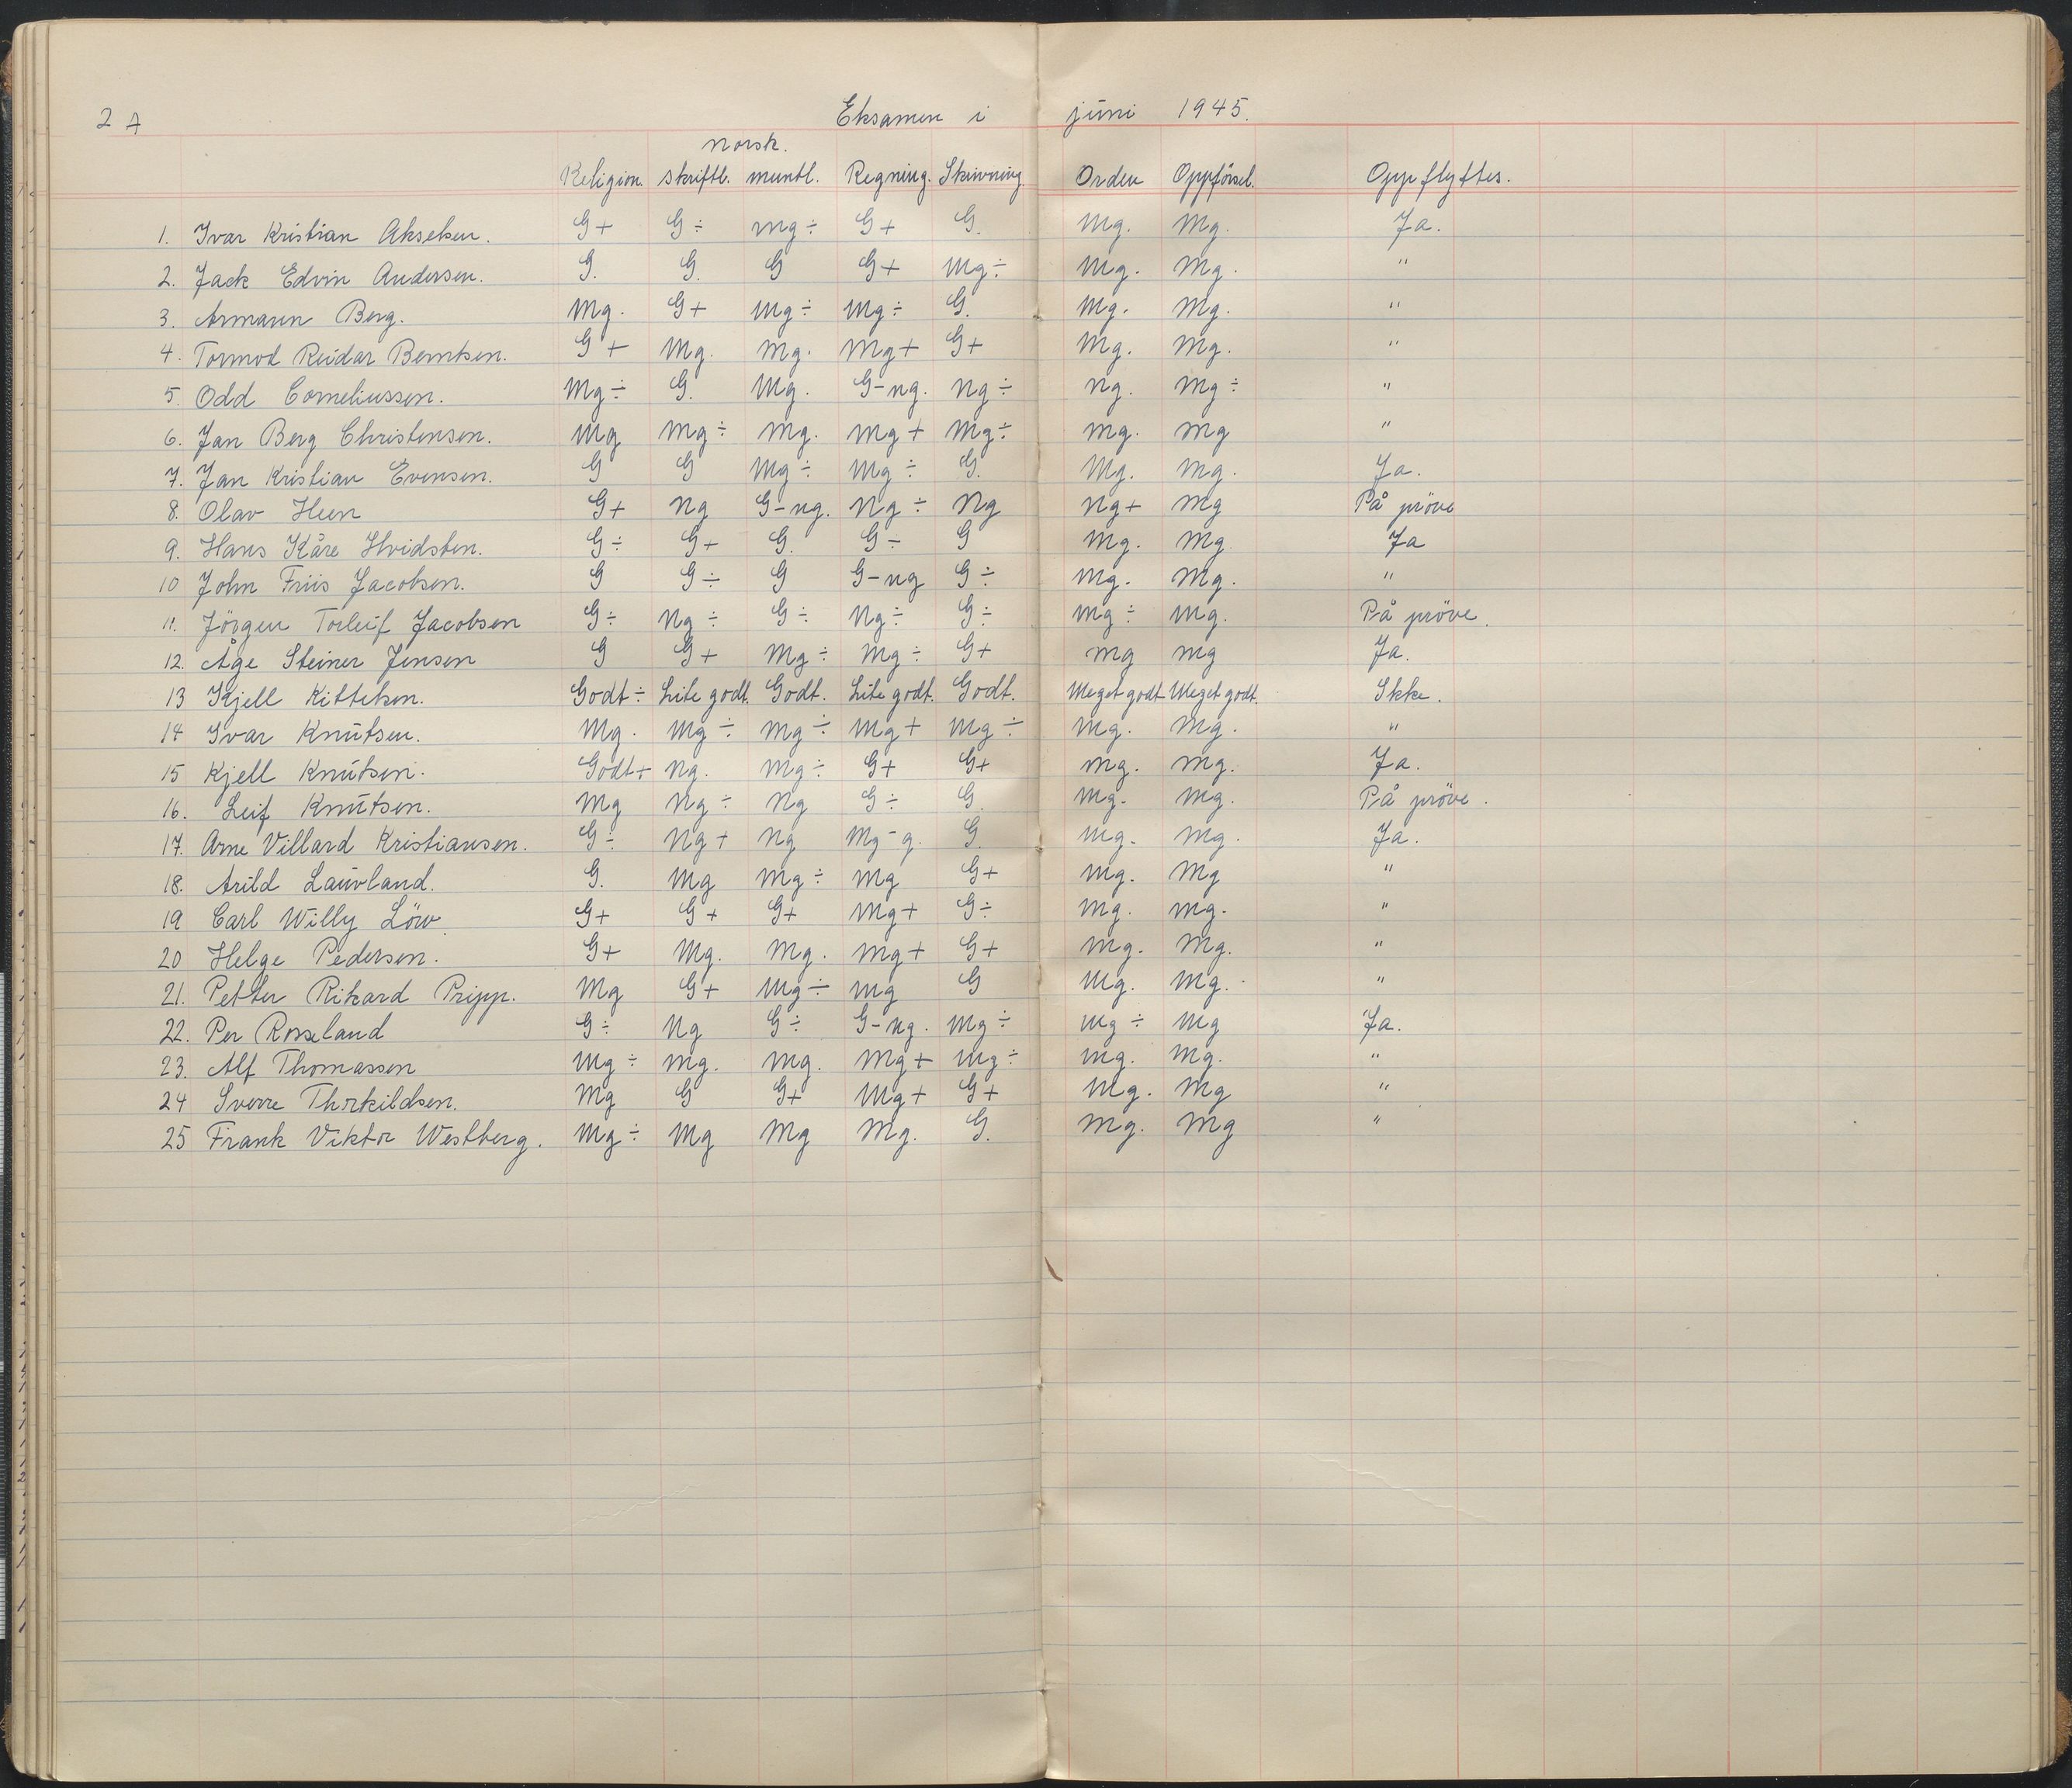 2 A Eksamen i juni 1945.
norsk.
Religion. skriftl. muntl. Regning. Skrivning. Orden Oppførsel. Oppflyttes.
1. Ivar Kristian Akselsen. G+ G÷ mg÷ G+ G. mg. Mg. Ja.
2. Jack Edvin Andersen. G. G. G G+ Mg÷ Mg. Mg. "
3. Armann Berg. Mg. G+ Mg÷ Mg÷ G. Mg. Mg. "
4. Tormod Reidar Berntsen. G+ Mg. Mg. Mg+ G+ Mg. Mg. "
5. Odd Corneliussen. Mg÷ G. Mg. G-ng. ng÷ ng. mg÷ "
6. Jan Berg Christensen. Mg mg÷ mg. mg+ mg÷ mg. mg "
7. Jan Kristian Evensen. G G Mg÷ Mg÷ G. Mg. mg. Ja.
8. Olav Heen G+ ng G-ng. Ng÷ Ng Ng+ mg På pröve
9. Hans Kåre Hvidsten. G÷ G+ G. G÷ G mg. mg Ja
10 John Friis Jacobsen. G G÷ G G-ng G÷ mg. Mg. "
11. Jörgen Torleif Jacobsen G÷ Ng÷ G÷ Ng÷ G÷ mg÷ mg. På pröve.
12. Åge Steiner Jensen G G+ Mg÷ Mg÷ G+ mg mg Ja.
13 Kjell Kittelsen. Godt÷ Lite godt. Godt. Lite godt. Godt. Meget godt. Meget godt. Ikke.
14 Ivar Knutsen. Mg. Mg÷ mg÷ mg+ mg÷ mg. mg. "
15 Kjell Knutsen. Godt+ ng. mg÷ G+ G+ mg. mg. Ja.
16. Leif Knutsen. Mg Ng÷ Ng G÷ G. mg. mg. På pröve.
17. Arne Villard Kristiansen. G÷ ng+ ng Mg-g. G. mg. mg. Ja.
18. Arild Lauvland. G. Mg mg÷ mg G+ mg. Mg "
19 Carl Willy Löw. G+ G+ G+ Mg+ G÷ mg. mg. "
20 Helge Pedersen. G+ Mg. Mg. mg+ G+ mg. Mg. "
21. Petter Rikard Pripp. Mg G+ mg÷ mg G Mg. Mg. "
22. Per Rosseland G÷ Ng G÷ G-ng. mg÷ mg÷ Mg Ja.
23. Alf Thomassen Mg÷ mg. mg. Mg+ mg÷ mg. mg. "
24 Sverre Thorkildsen. Mg G G+ Mg+ G+ Mg. Mg "
25 Frank Viktor Westberg. Mg÷ Mg Mg Mg. G. mg. Mg "